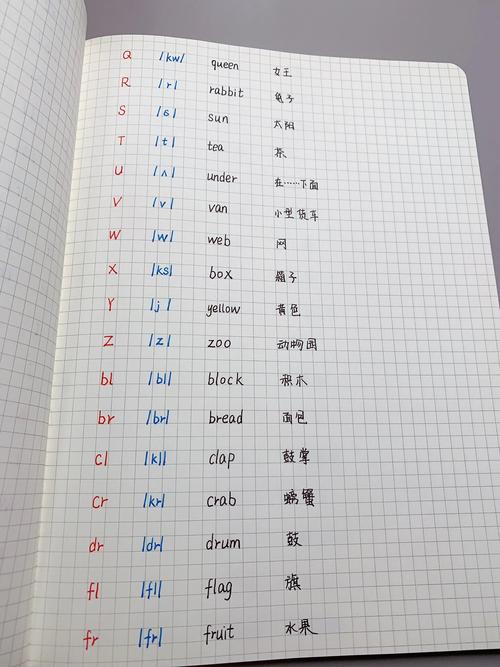 Q /kw/ queen 女王
R /r/ rabbit 兔子
S /s/ sun 太阳
T /t/ tea 茶
U /ʌ/ under 在……下面
V /v/ van 小型货车
W /w/ web 网
X /ks/ box 箱子
Y /j/ yellow 黄色
Z /z/ zoo 动物园
bl /bl/ block 积木
br /br/ bread 面包
cl /kl/ clap 鼓掌
cr /kr/ crab 螃蟹
dr /dr/ drum 鼓
fl /fl/ flag 旗
fr /fr/ fruit 水果